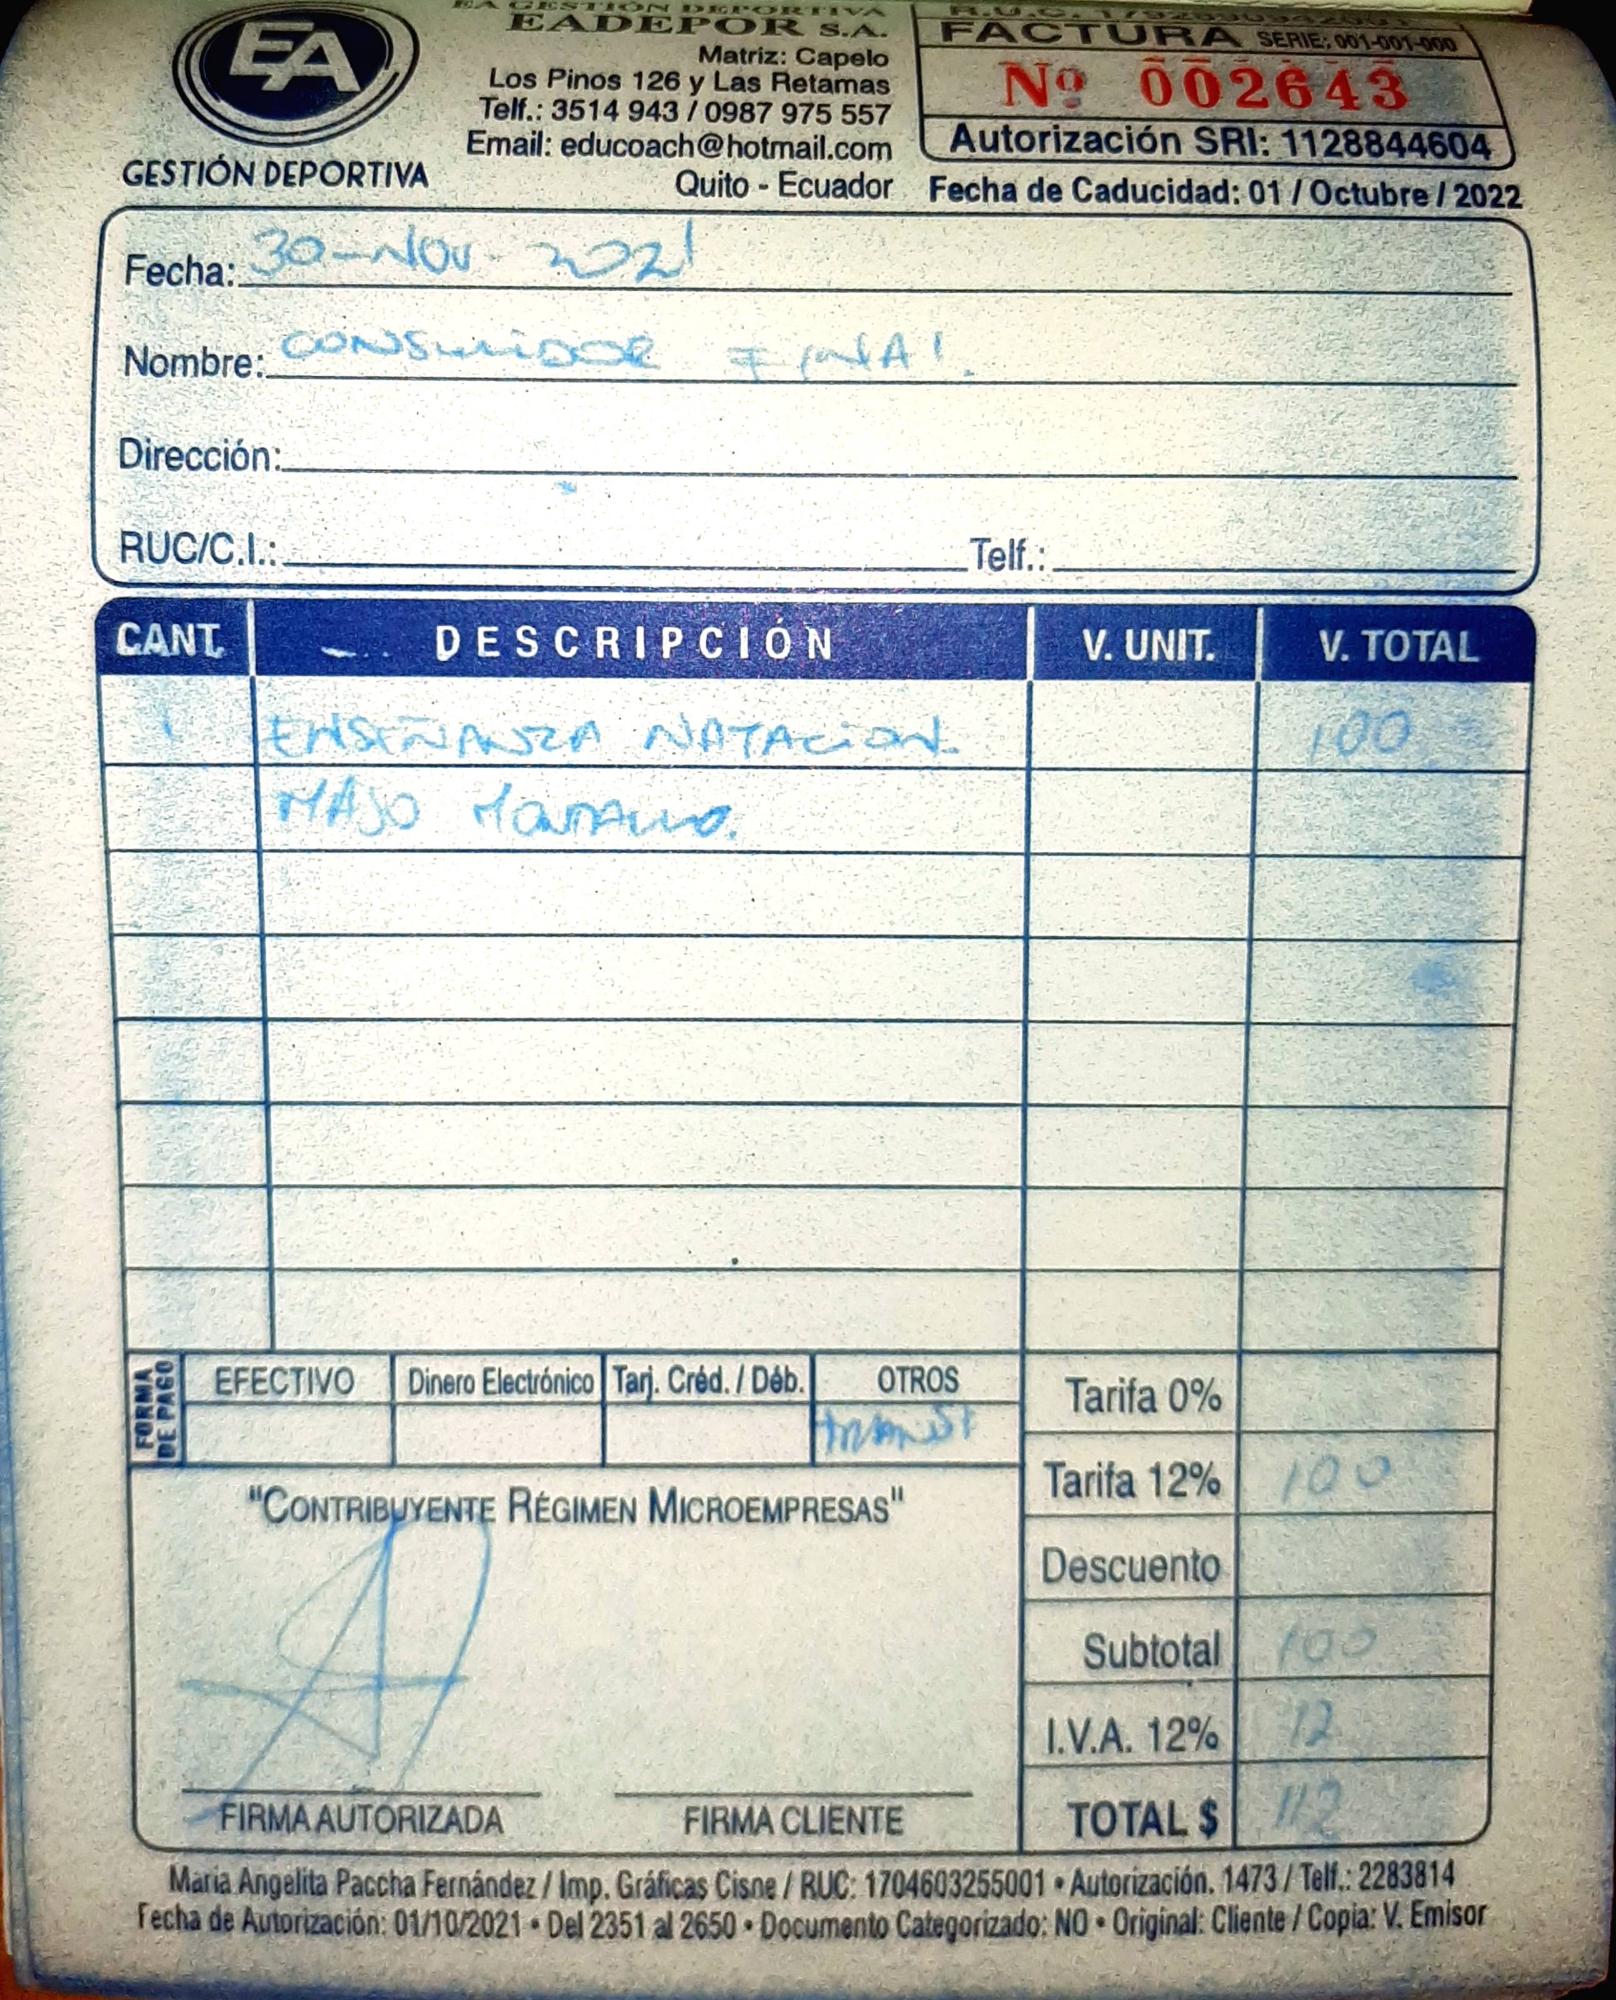 EA
GESTIÓN DEPORTIVA
EA GESTIÓN DEPORTIVA
EADEPOR S.A.
Matriz: Capelo
Los Pinos 126 y Las Retamas
Telf.: 3514 943 / 0987 975 557
Email: educoach@hotmail.com
Quito - Ecuador
FACTURA SERIE: 001-001-000
Nº 002643
Autorización SRI: 1128844604
Fecha de Caducidad: 01 / Octubre / 2022
Fecha: 30-Nov-2021
Nombre: CONSUMIDOR FINAL.
Dirección:
RUC/C.I.: Telf.:
CANT. DESCRIPCIÓN V. UNIT. V. TOTAL
1 ENSEÑANZA NATACION. 100
MAJO
FORMA DE PAGO
EFECTIVO Dinero Electrónico Tarj. Créd. / Déb. OTROS
Tarifa 0%
Tarifa 12% 100
Descuento
Subtotal 100
I.V.A. 12% 12
TOTAL $ 112
"CONTRIBUYENTE RÉGIMEN MICROEMPRESAS"
FIRMA AUTORIZADA FIRMA CLIENTE
Maria Angelita Paccha Fernández / Imp. Gráficas Cisne / RUC: 1704603255001 • Autorización. 1473 / Telf.: 2283814
Fecha de Autorización: 01/10/2021 • Del 2351 al 2650 • Documento Categorizado: NO • Original: Cliente / Copia: V. Emisor